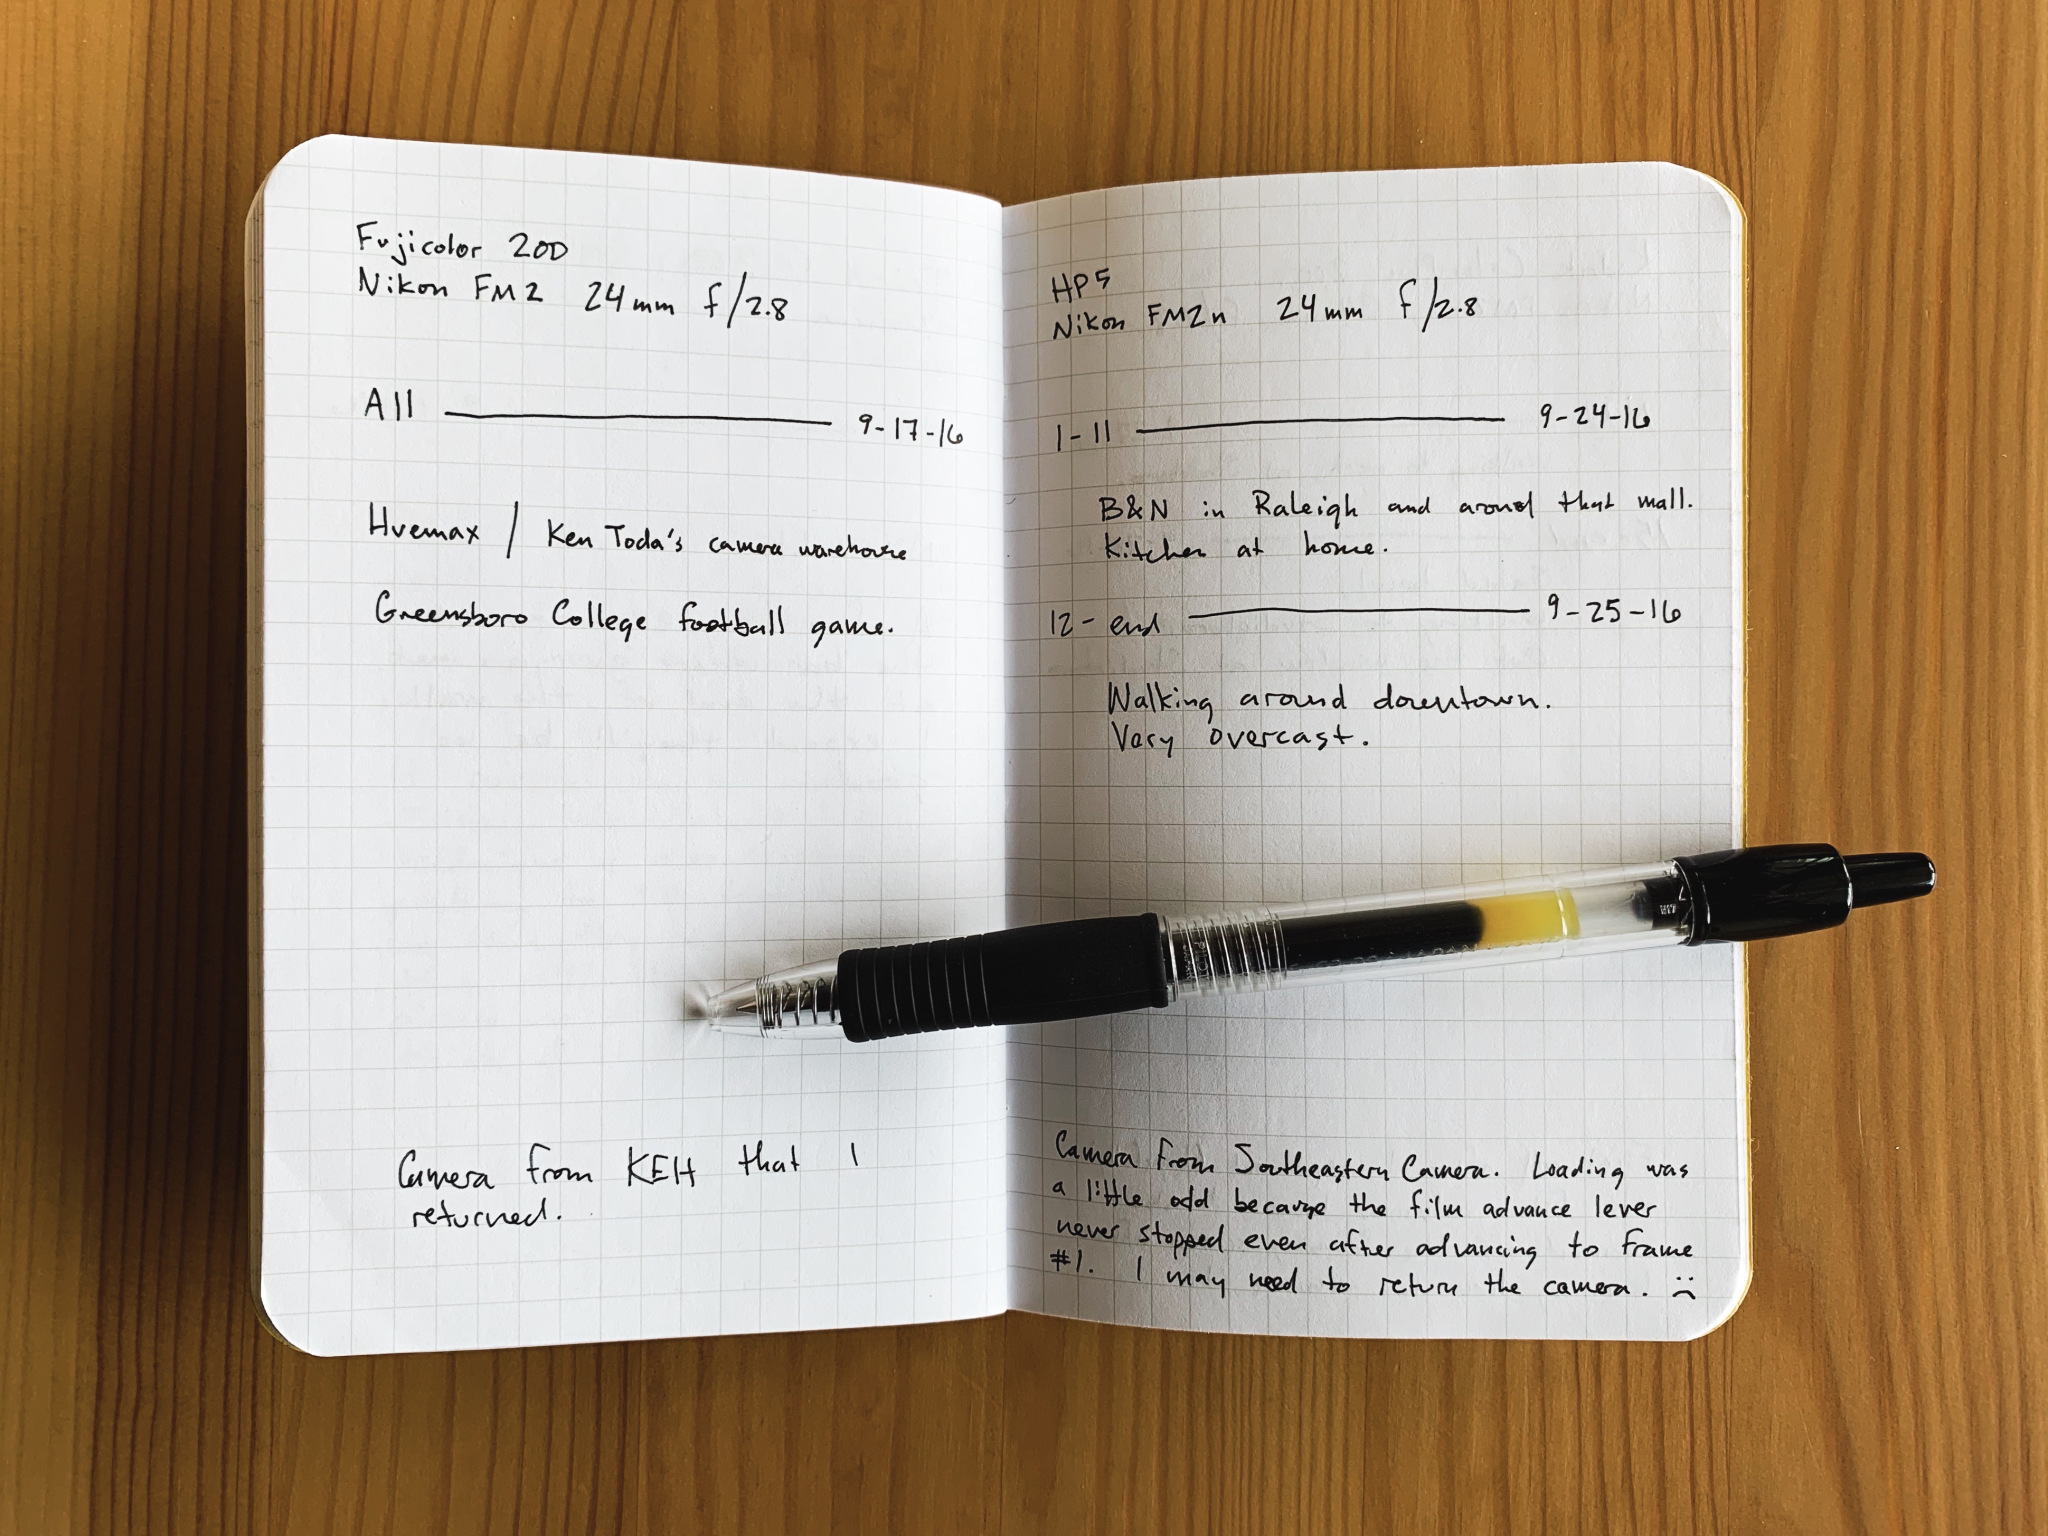 Fujicolor 200
Nikon FM2 24mm f/2.8
All 9-17-16
Huemax / Ken Toda's camera warehouse
Greensboro College football game.
Camera from KEH that I
returned.
HP5
Nikon FM2n 24mm f/2.8
1-11 9-24-16
B&N in Raleigh and around that mall.
Kitchen at home.
12- end 9-25-16
Walking around downtown.
Very overcast.
Camera from Southeastern Camera. Loading was
a little odd because the film advance lever
never stopped even after advancing to frame
#1. I may need to return the camera. :(
PILOT